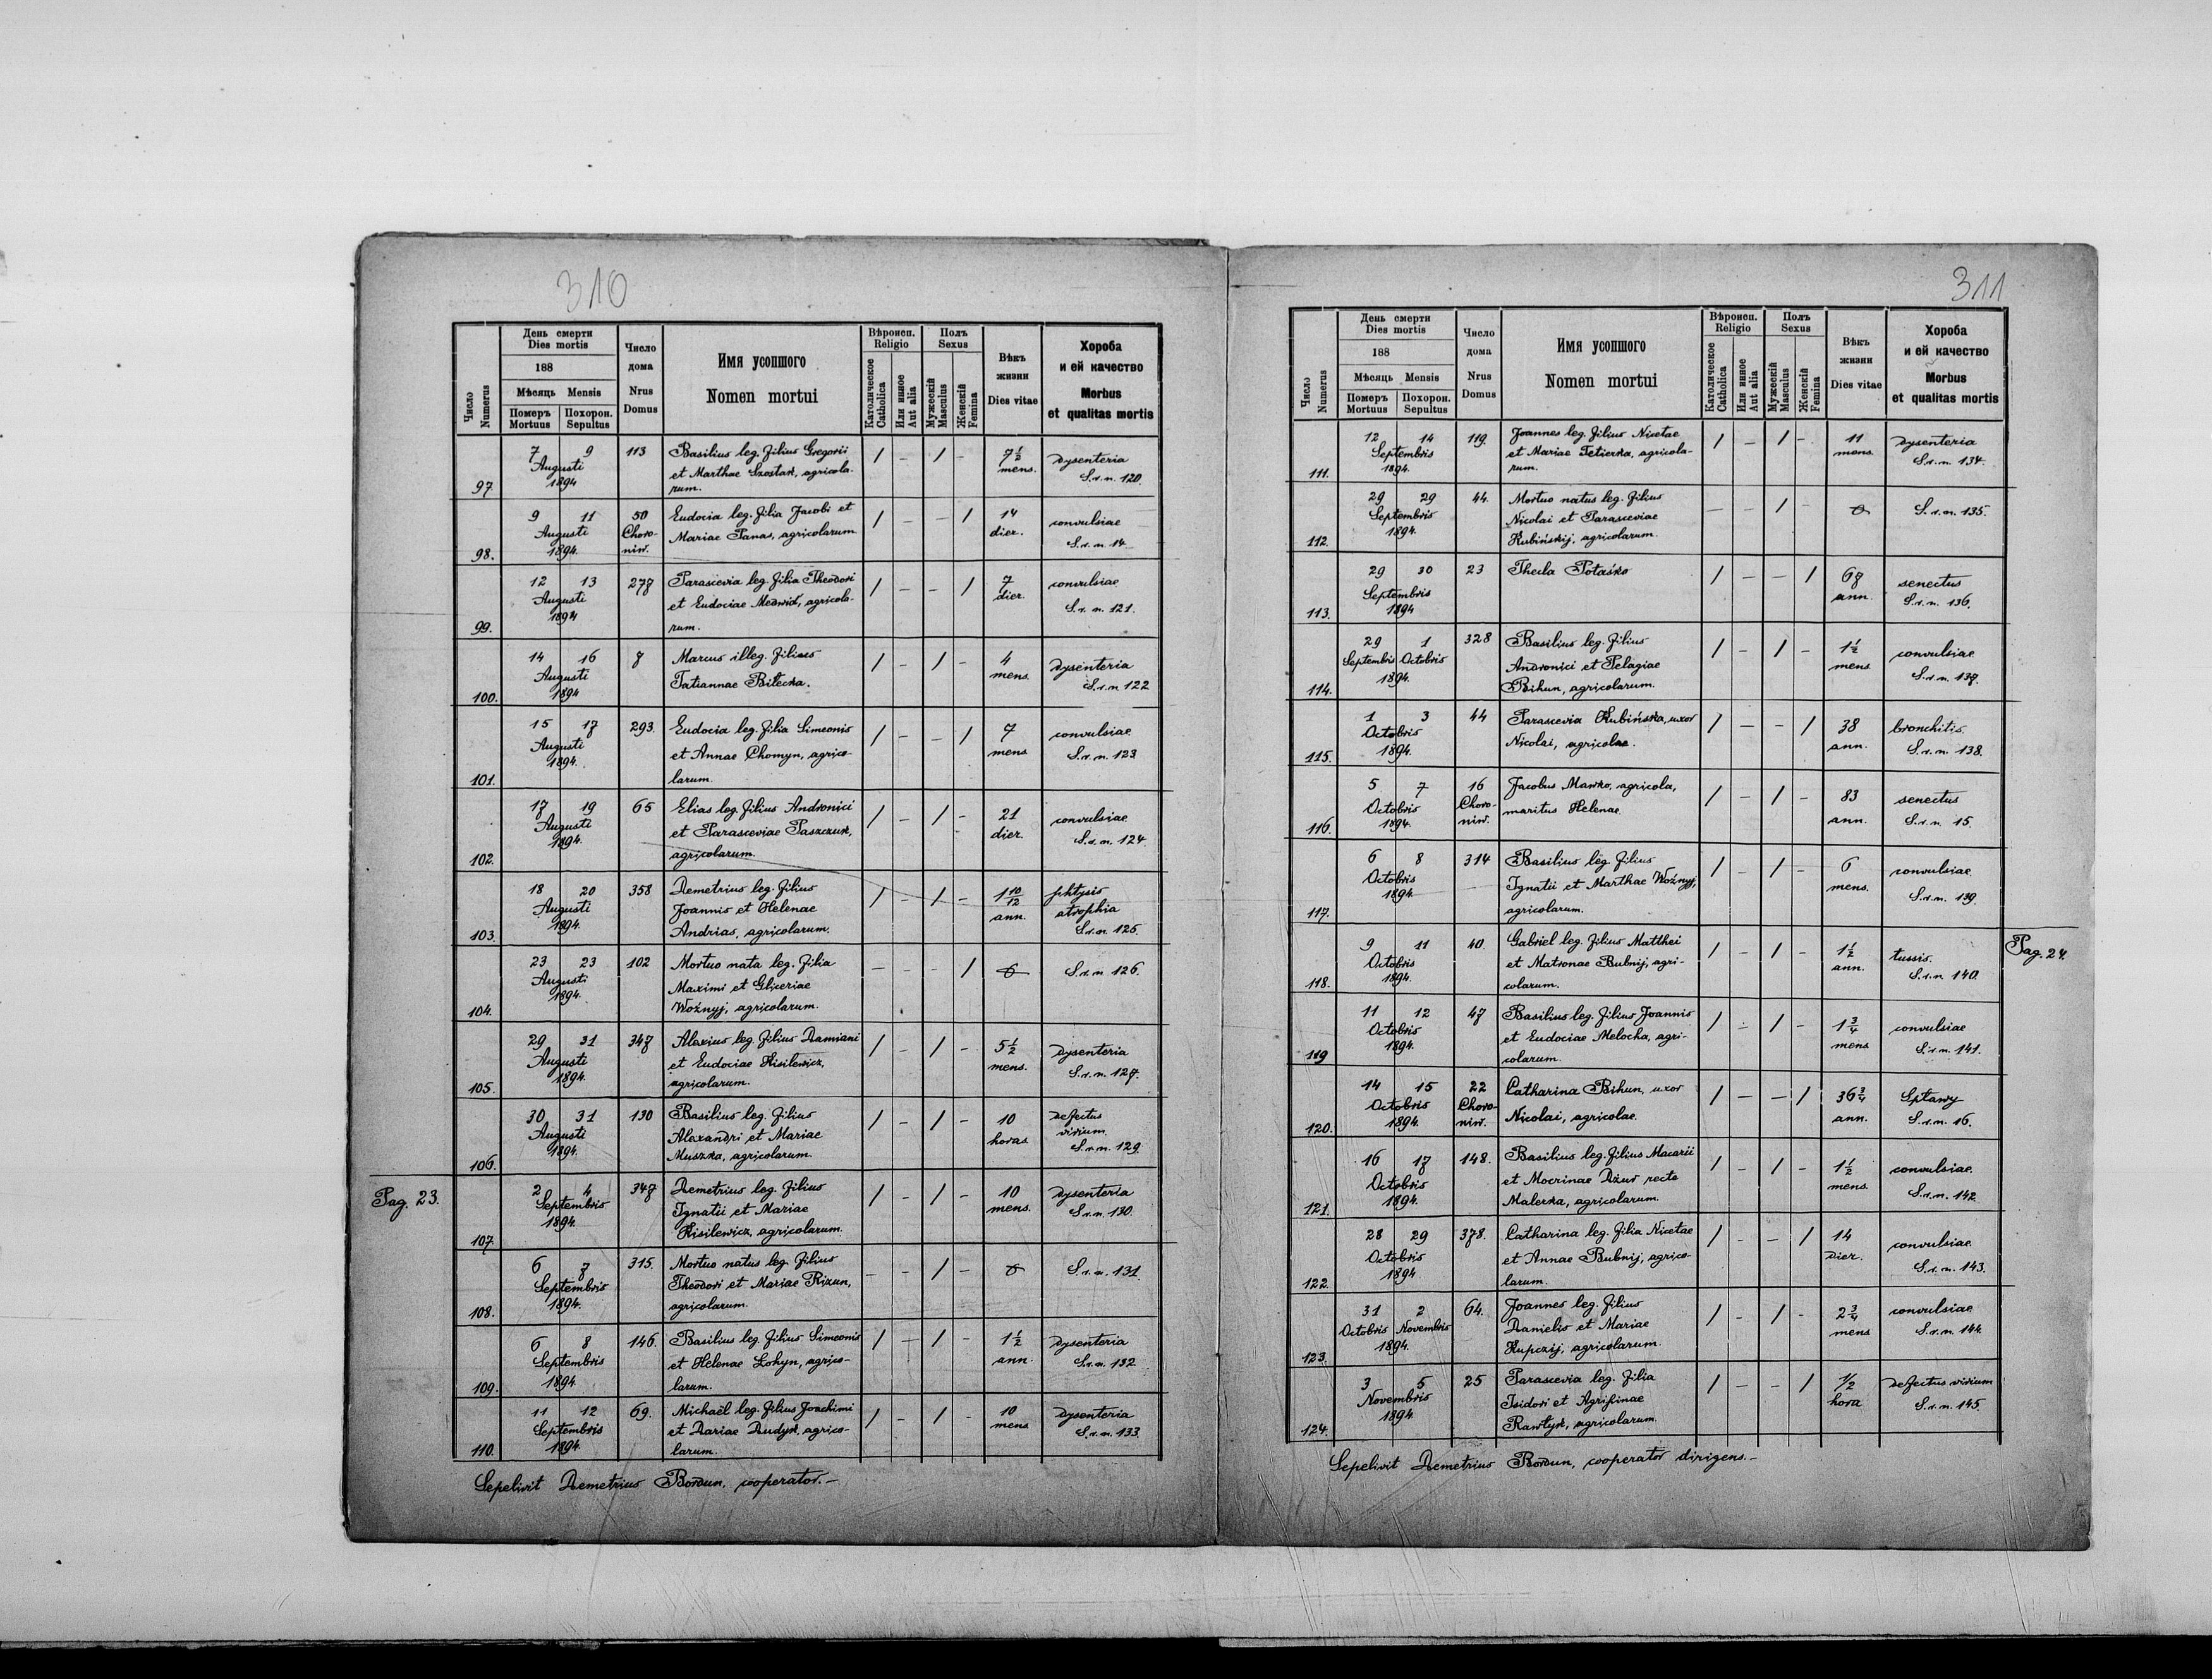 310
Число Numerus
День смерти
Dies mortis
188
Мѣсяць Mensis
Померъ Mortuus
Похорон. Sepultus
Число дома
Nrus Domus
Имя усопшого
Nomen mortui
Вѣроисп.
Religio
Католическое Catholica
Или инное Aut alia
Полъ
Sexus
Мужескій Masculus
Женскій Femina
Вѣкъ жизни
Dies vitae
Хороба
и ей качество
Morbus
et qualitas mortis
97. 7 9 Augusti 1894 113 Basilius leg. filius Gregorii / – / – 7½ mens. dysenteria
et Marthae Szostak, agricola- S.s.n. 120.
rum.
98. 9 11 Augusti 1894. 50 Choro-niw. Eudocia leg. filia Jacobi et / – – / 14 dier. convulsiae
Mariae Panas, agricolarum. S.s.n. 14
99. 12 13 Augusti 1894 278 Parascevia leg. filia Theodori / – – / 7 dier. convulsiae
et Eudociae Medwid, agricola- S.s.n. 121.
rum.
100. 14 16 Augusti 1894 8 Marcus illeg. filius / – / – 4 mens. dysenteria
Tatiannae Biłecka. S.s.n. 122
101. 15 17 Augusti 1894. 293. Eudocia leg. filia Simeonis / – – / 7 mens. convulsiae
et Annae Chomyn, agrico- S.s.n. 123
larum.
102. 17 19 Augusti 1894. 65 Elias leg. filius Andronici / – / – 21 dier. convulsiae
et Parasceviae Paszczuk, S.s.n. 124.
agricolarum.
103. 18 20 Augusti 1894. 358 Demetrius leg. filius / – / – 1 10/12 ann. phtysis
Joannis et Helenae atrophia
Andrias, agricolarum. S.s.n. 125.
104. 23 23 Augusti 1894. 102 Mortuo nata leg. filia – – – / 0 S.s.n. 126.
Maximi et Gliceriae
Woźnyj, agricolarum.
105. 29 31 Augusti 1894. 348 Alexius leg. filius Damiani / – / – 5½ mens. dysenteria
et Eudociae Kisilewicz, S.s.n. 128.
agricolarum.
106. 30 31 Augusti 1894. 130 Basilius leg. filius / – / – 10 horas defectus
Alexandri et Mariae virium
Muszka, agricolarum. S.s.n. 129.
Pag. 23.
107. 2 4 Septembris 1894. 348 Demetrius leg. filius / – / – 10 mens. dysenteria
Ignatii et Mariae S.s.n. 130.
Kisilewicz, agricolarum.
108. 6 7 Septembris 1894. 315. Mortuo natus leg. filius – – / – 0 S.s.n. 131.
Theodori et Mariae Rizun,
agricolarum.
109. 6 8 Septembris 1894. 146. Basilius leg. filius Simeonis / – / – 1½ ann. dysenteria
et Helenae Łohyn, agrico- S.s.n. 132
larum.
110. 11 12 Septembris 1894. 69. Michaël leg. filius Joachimi / – / – 10 mens. dysenteria
et Dariae Dudyk, agrico- S.s.n. 133.
larum.
Sepelivit Demetrius Bordun, cooperator.–
311
Число Numerus
День смерти
Dies mortis
188
Мѣсяць Mensis
Померъ Mortuus
Похорон. Sepultus
Число дома
Nrus Domus
Имя усопшого
Nomen mortui
Вѣроисп.
Religio
Католическое Catholica
Или инное Aut alia
Полъ
Sexus
Мужескій Masculus
Женскій Femina
Вѣкъ жизни
Dies vitae
Хороба
и ей качество
Morbus
et qualitas mortis
111. 12 14 Septembris 1894. 119. Joannes leg. filius Nicetae / – / – 11 mens. dysenteria
et Mariae Tetierka, agricola- S.s.n. 134.
rum.
112. 29 29 Septembris 1894. 44. Mortuo natus leg. filius – – / – 0 S.s.n. 135.
Nicolai et Parasceviae
Kubińskij, agricolarum.
113. 29 30 Septembris 1894 23 Thecla Potaśko / – – / 68 ann. senectus
S.s.n. 136.
114. 29 Septembris 1 Octobris 1894. 328 Basilius leg. filius / – / – 1½ mens. convulsiae
Andronici et Pelagiae S.s.n. 138.
Bihun, agricolarum.
115. 1 3 Octobris 1894. 44 Parascevia Kubińska, uxor / – – / 38 ann. bronchitis.
Nicolai, agricolae. S.s.n. 138.
116. 5 7 Octobris 1894. 16 Choro-niw. Jacobus Mawko, agricola, / – / – 83 ann. senectus
maritus Helenae S.s.n. 15.
117. 6 8 Octobris 1894 314 Basilius leg. filius / – / – 6 mens. convulsiae
Ignatii et Marthae Woźnyj, S.s.n. 139.
agricolarum.
118. 9 11 Octobris 1894. 40. Gabriel leg. filius Matthei / – / – 1½ ann. tussis. Pag. 24.
et Matronae Bubnij, agri- S.s.n. 140.
colarum.
119 11 12 Octobris 1894. 48 Basilius leg. filius Joannis / – / – 1¾ mens convulsiae
et Eudociae Melocha, agri- S.s.n. 141.
colarum.
120. 14 15 Octobris 1894. 22 Choro-niw. Catharina Bihun, uxor / – – / 36¾ ann.
Nicolai, agricolae. S.s.n. 16.
121. 16 17 Octobris 1894. 148. Basilius leg. filius Macarii / – / – 1½ mens. convulsiae.
et Mocrinae Dżus recte S.s.n. 142.
Malerka, agricolarum.
122. 28 29 Octobris 1894 378. Catharina leg. filia Nicetae / – – / 14 dier. convulsiae.
et Annae Bubnij, agrico- S.s.n. 143.
larum.
123. 31 Octobris 2 Novembris 1894. 64. Joannes leg. filius / – / – 2¾ mens convulsiae
Danielis et Mariae S.s.n. 144.
Kupczij, agricolarum.
124. 3 5 Novembris 1894. 25 Parascevia leg. filia / – – / ½ hora defectus virium
Isidori et Agrifinae S.s.n. 145.
Rawłyk, agricolarum.
Sepelivit Demetrius Bordun, cooperator dirigens.–